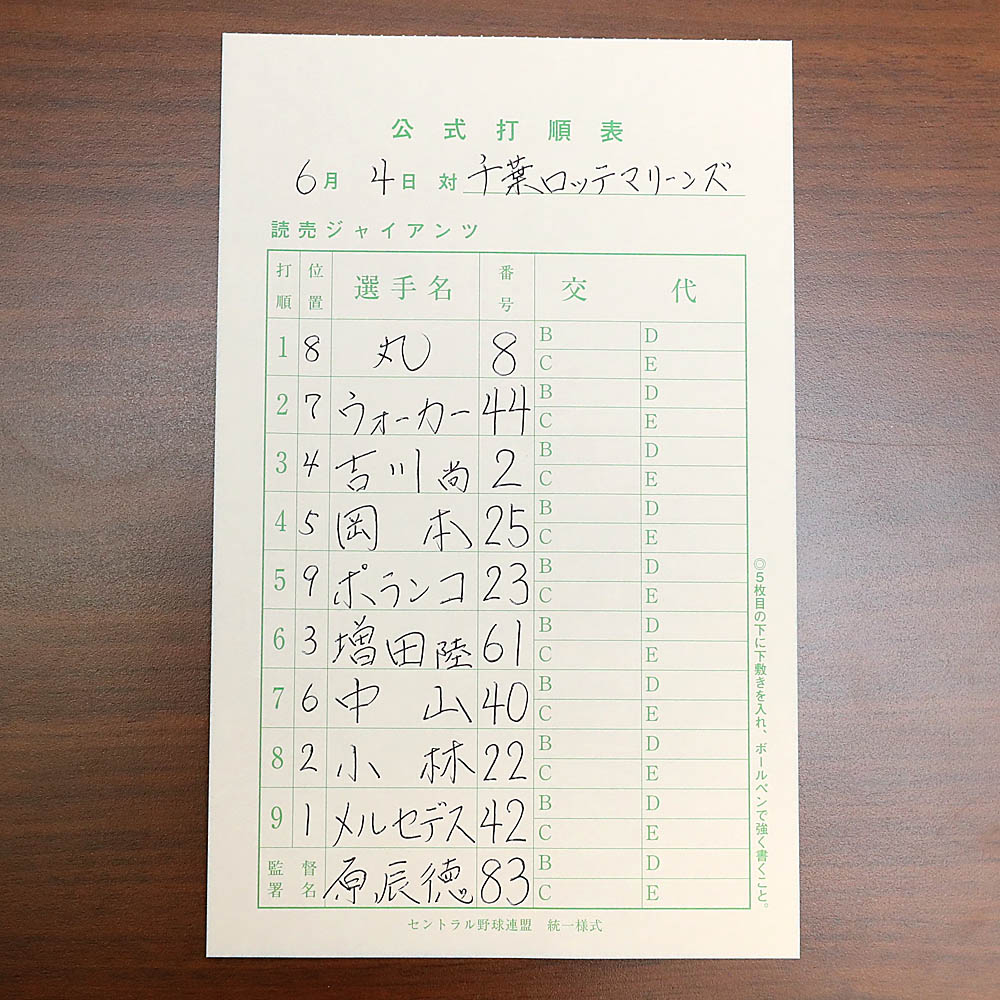 公式打順表
6月 4日 対 千葉ロッテマリーンズ
読売ジャイアンツ
打順 位置 選手名 番号 交代
1 8 丸 8 B D
C E
2 7 ウォーカー 44 B D
C E
3 4 吉川尚 2 B D
C E
4 5 岡本 25 B D
C E
5 9 ポランコ 23 B D
C E
6 3 増田陸 61 B D
C E
7 6 中山 40 B D
C E
8 2 小林 22 B D
C E
9 1 メルセデス 42 B D
C E
監督署名 原辰徳 83 B D
C E
◎5枚目の下に下敷きを入れ、ボールペンで強く書くこと。
セントラル野球連盟 統一様式